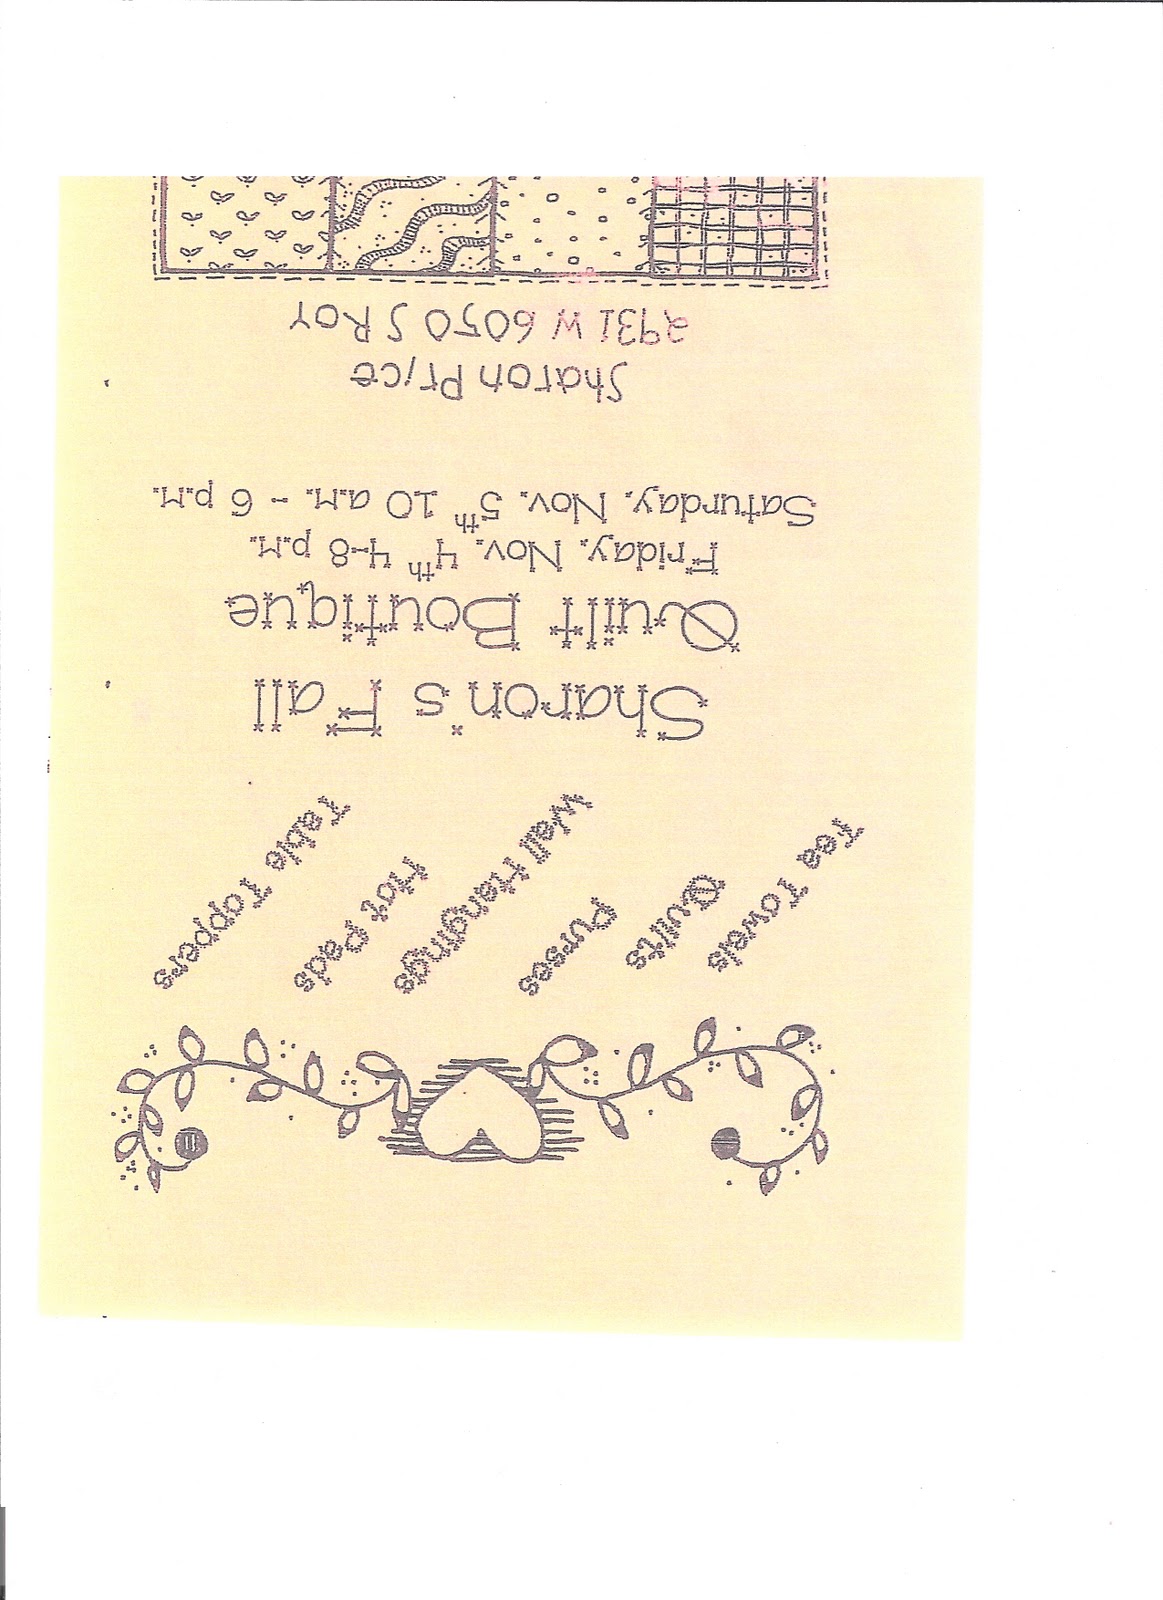 Tea Towels
Quilts
Purses
Wall Hangings
Hot Pads
Table Toppers
Sharon's Fall
Quilt Boutique
Friday, Nov. 4th 4-8 p.m.
Saturday, Nov. 5th 10 a.m. - 6 p.m.
Sharon Price
2931 W 6050 S Roy